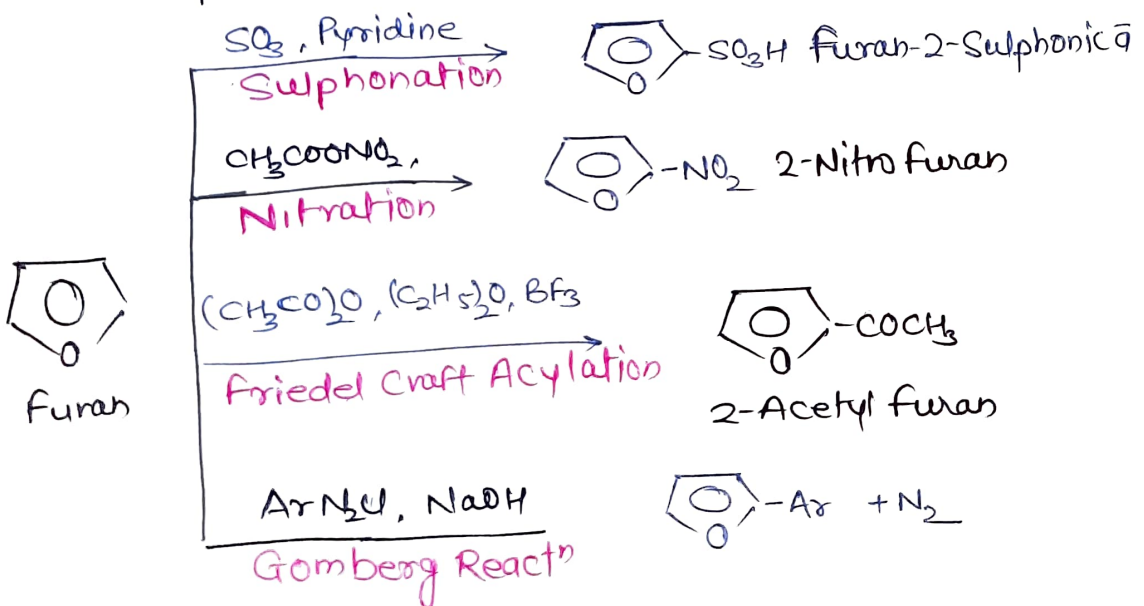 SO3, Pyridine
Sulphonation
O
-SO3H Furan-2-Sulphonic a
CH3COONO2,
Nitration
O
-NO2 2-Nitro furan
(CH3CO)2O, (C2H5)2O, BF3
Friedel Craft Acylation
O
-COCH3
2-Acetyl furan
O
Furan
ArN2Cl, NaOH
Gomberg Reactn
O
-Ar + N2